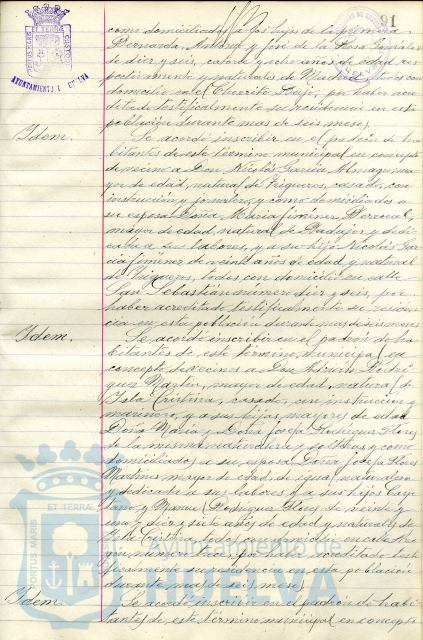 91
como domiciliados a los hijos de la primera
Bernarda, Antonio y José de la Rosa
de diez y seis, catorce y ocho años de edad res-
pectivamente y naturales de Madrid, todos con
domicilio calle Charito Bajo, por haber acre-
ditado testificalmente su residencia en esta
población durante mas de seis meses.
Idem.
Se acordó inscribir en el padrón de ha-
bitantes de este término municipal en concepto
de vecino a Don Nicolás García Almagro, ma-
yor de edad, natural de Trigueros, casado, con
instrucción y jornalero, y como domiciliados a
su esposa Doña María Jiménez
mayor de edad, natural de Badajoz y dedi-
cada a su labores, y a su hijo Nicolás Gar-
cía Jiménez de veinte años de edad y natural
de Trigueros, todos con domicilio en calle
San Sebastián número diez y seis, por
haber acreditado testificalmente su residen-
cia en esta población durante mas de seis meses.
Idem.
Se acordó inscribir en el padrón de ha-
bitantes de este término municipal en
concepto de vecinos a Don Rodrí-
guez Martín, mayor de edad, natural de
Isla Cristina, casado, con instrucción y
marinero, y a sus hijas mayores de edad
Doña María y Doña Josefa Rodríguez Flores
de la misma naturaleza y solteras y como
domiciliados a su esposa Doña Josefa Flores
Martínez mayor de edad, de igual naturaleza
y dedicada a sus labores y a sus hijos Caye-
tano y Manuel Rodríguez Flores de veinte y
uno y diez y siete años de edad y naturales de
Isla Cristina, todos con domicilio en calle
número por haber acreditado testi-
ficalmente su residencia en esta población
durante mas de seis meses.
Idem.
Se acordó inscribir en el padrón de habi-
tantes de este término municipal en concepto
AYUNTAMIENTO DE HUELVA
PORTUS MARIS
ET TERRAE
CUSTODIA
Ayuntamiento de
HUELVA